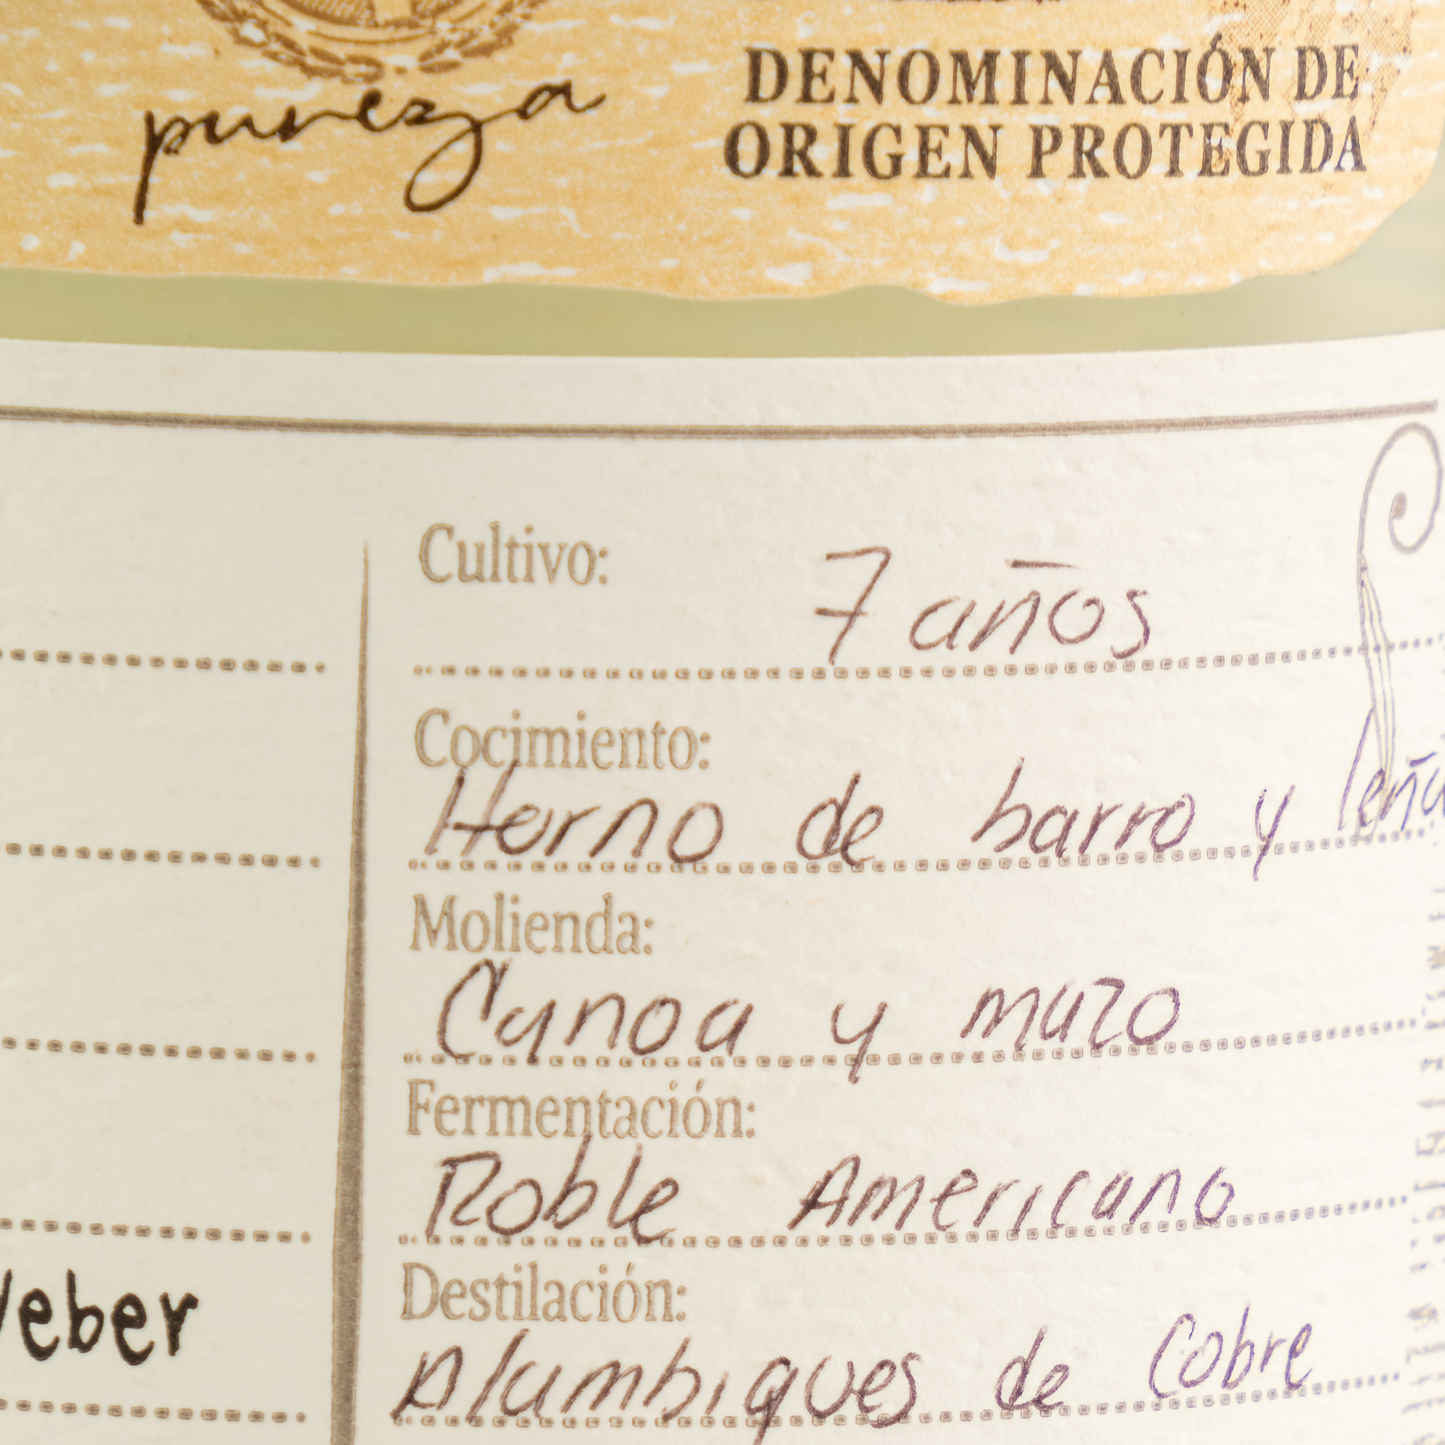 pureza
DENOMINACIÓN DE
ORIGEN PROTEGIDA
Cultivo:
7 años
Cocimiento:
Horno de barro y leña
Molienda:
Canoa y mazo
Fermentación:
Roble Americano
Destilación:
Weber
Alambiques de Cobre